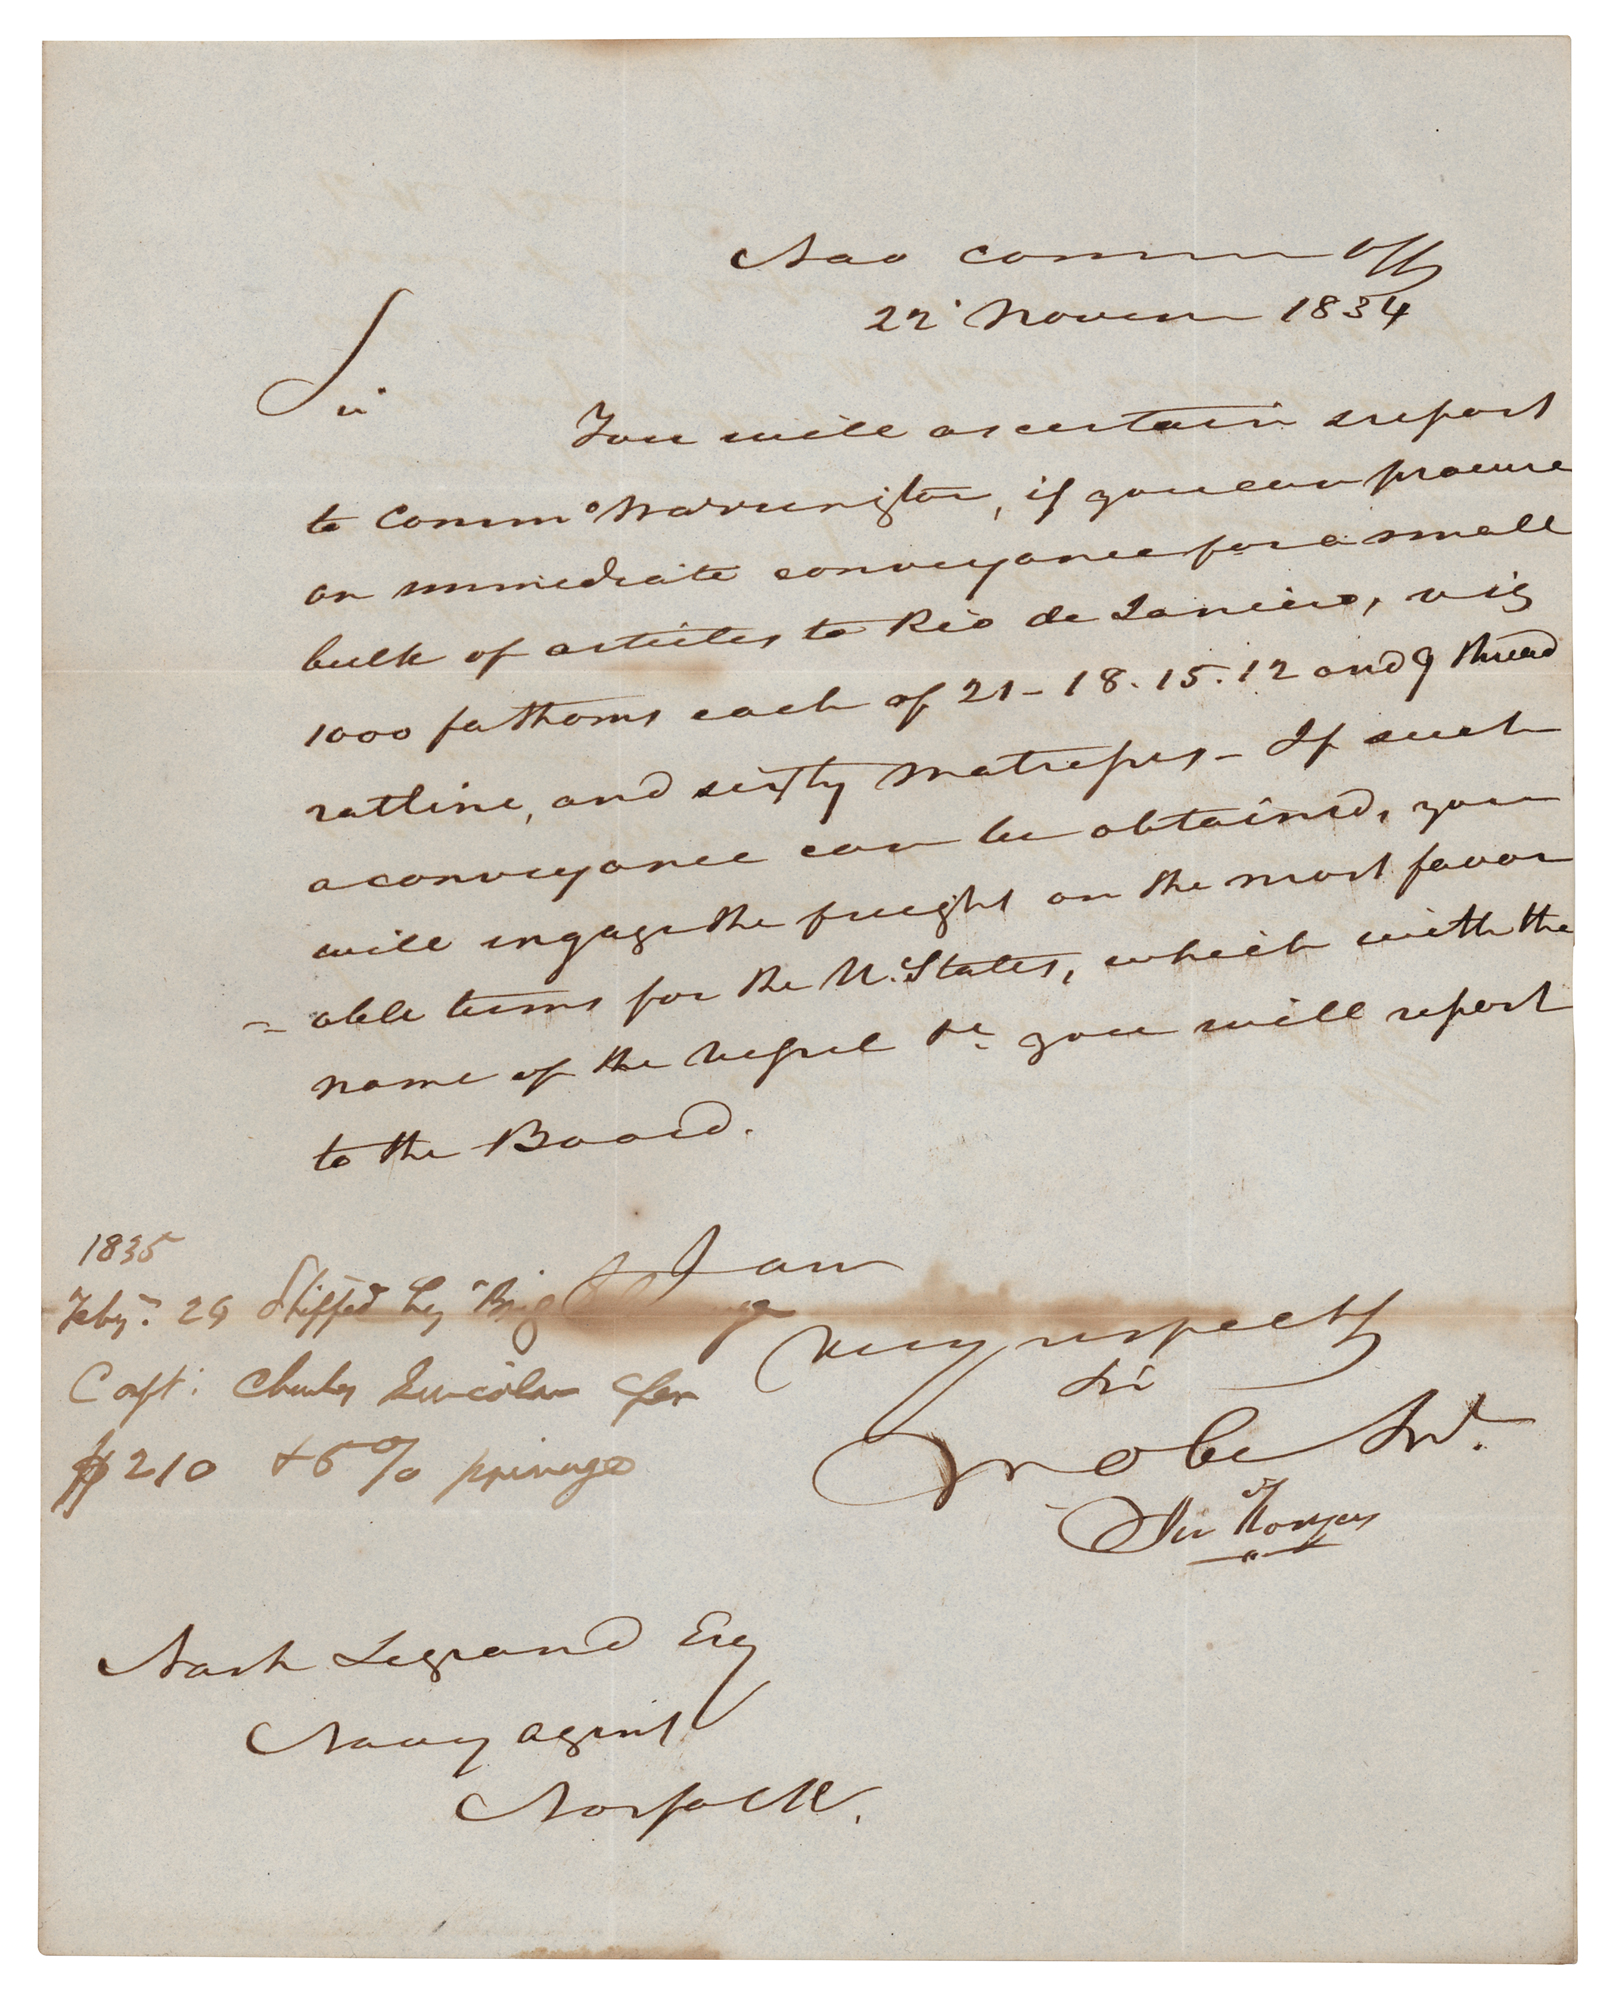 Nav Comm Off
22 Novem 1834
Sir
You will ascertain & report
to Commo Warrington, if you can procure
an immediate conveyance for a small
bulk of articles to Rio de Janeiro, viz
1000 fathoms each of 21 - 18. 15. 12 and 9 thread
ratline, and sixty matresses - If such
a conveyance can be obtained, you
will engage the freight on the most favor
= able terms for the U. States, which with the
name of the vessel &c. you will report
to the Board.
I am
very respecty
Sir
yr obt Srvt.
Jno Rodgers
1835
Feby. 26 Shipped by Brig
Capt. Charles Lincoln for
$210 & 5 % primage
Nash Legrand Esq
Navy agent
Norfolk.